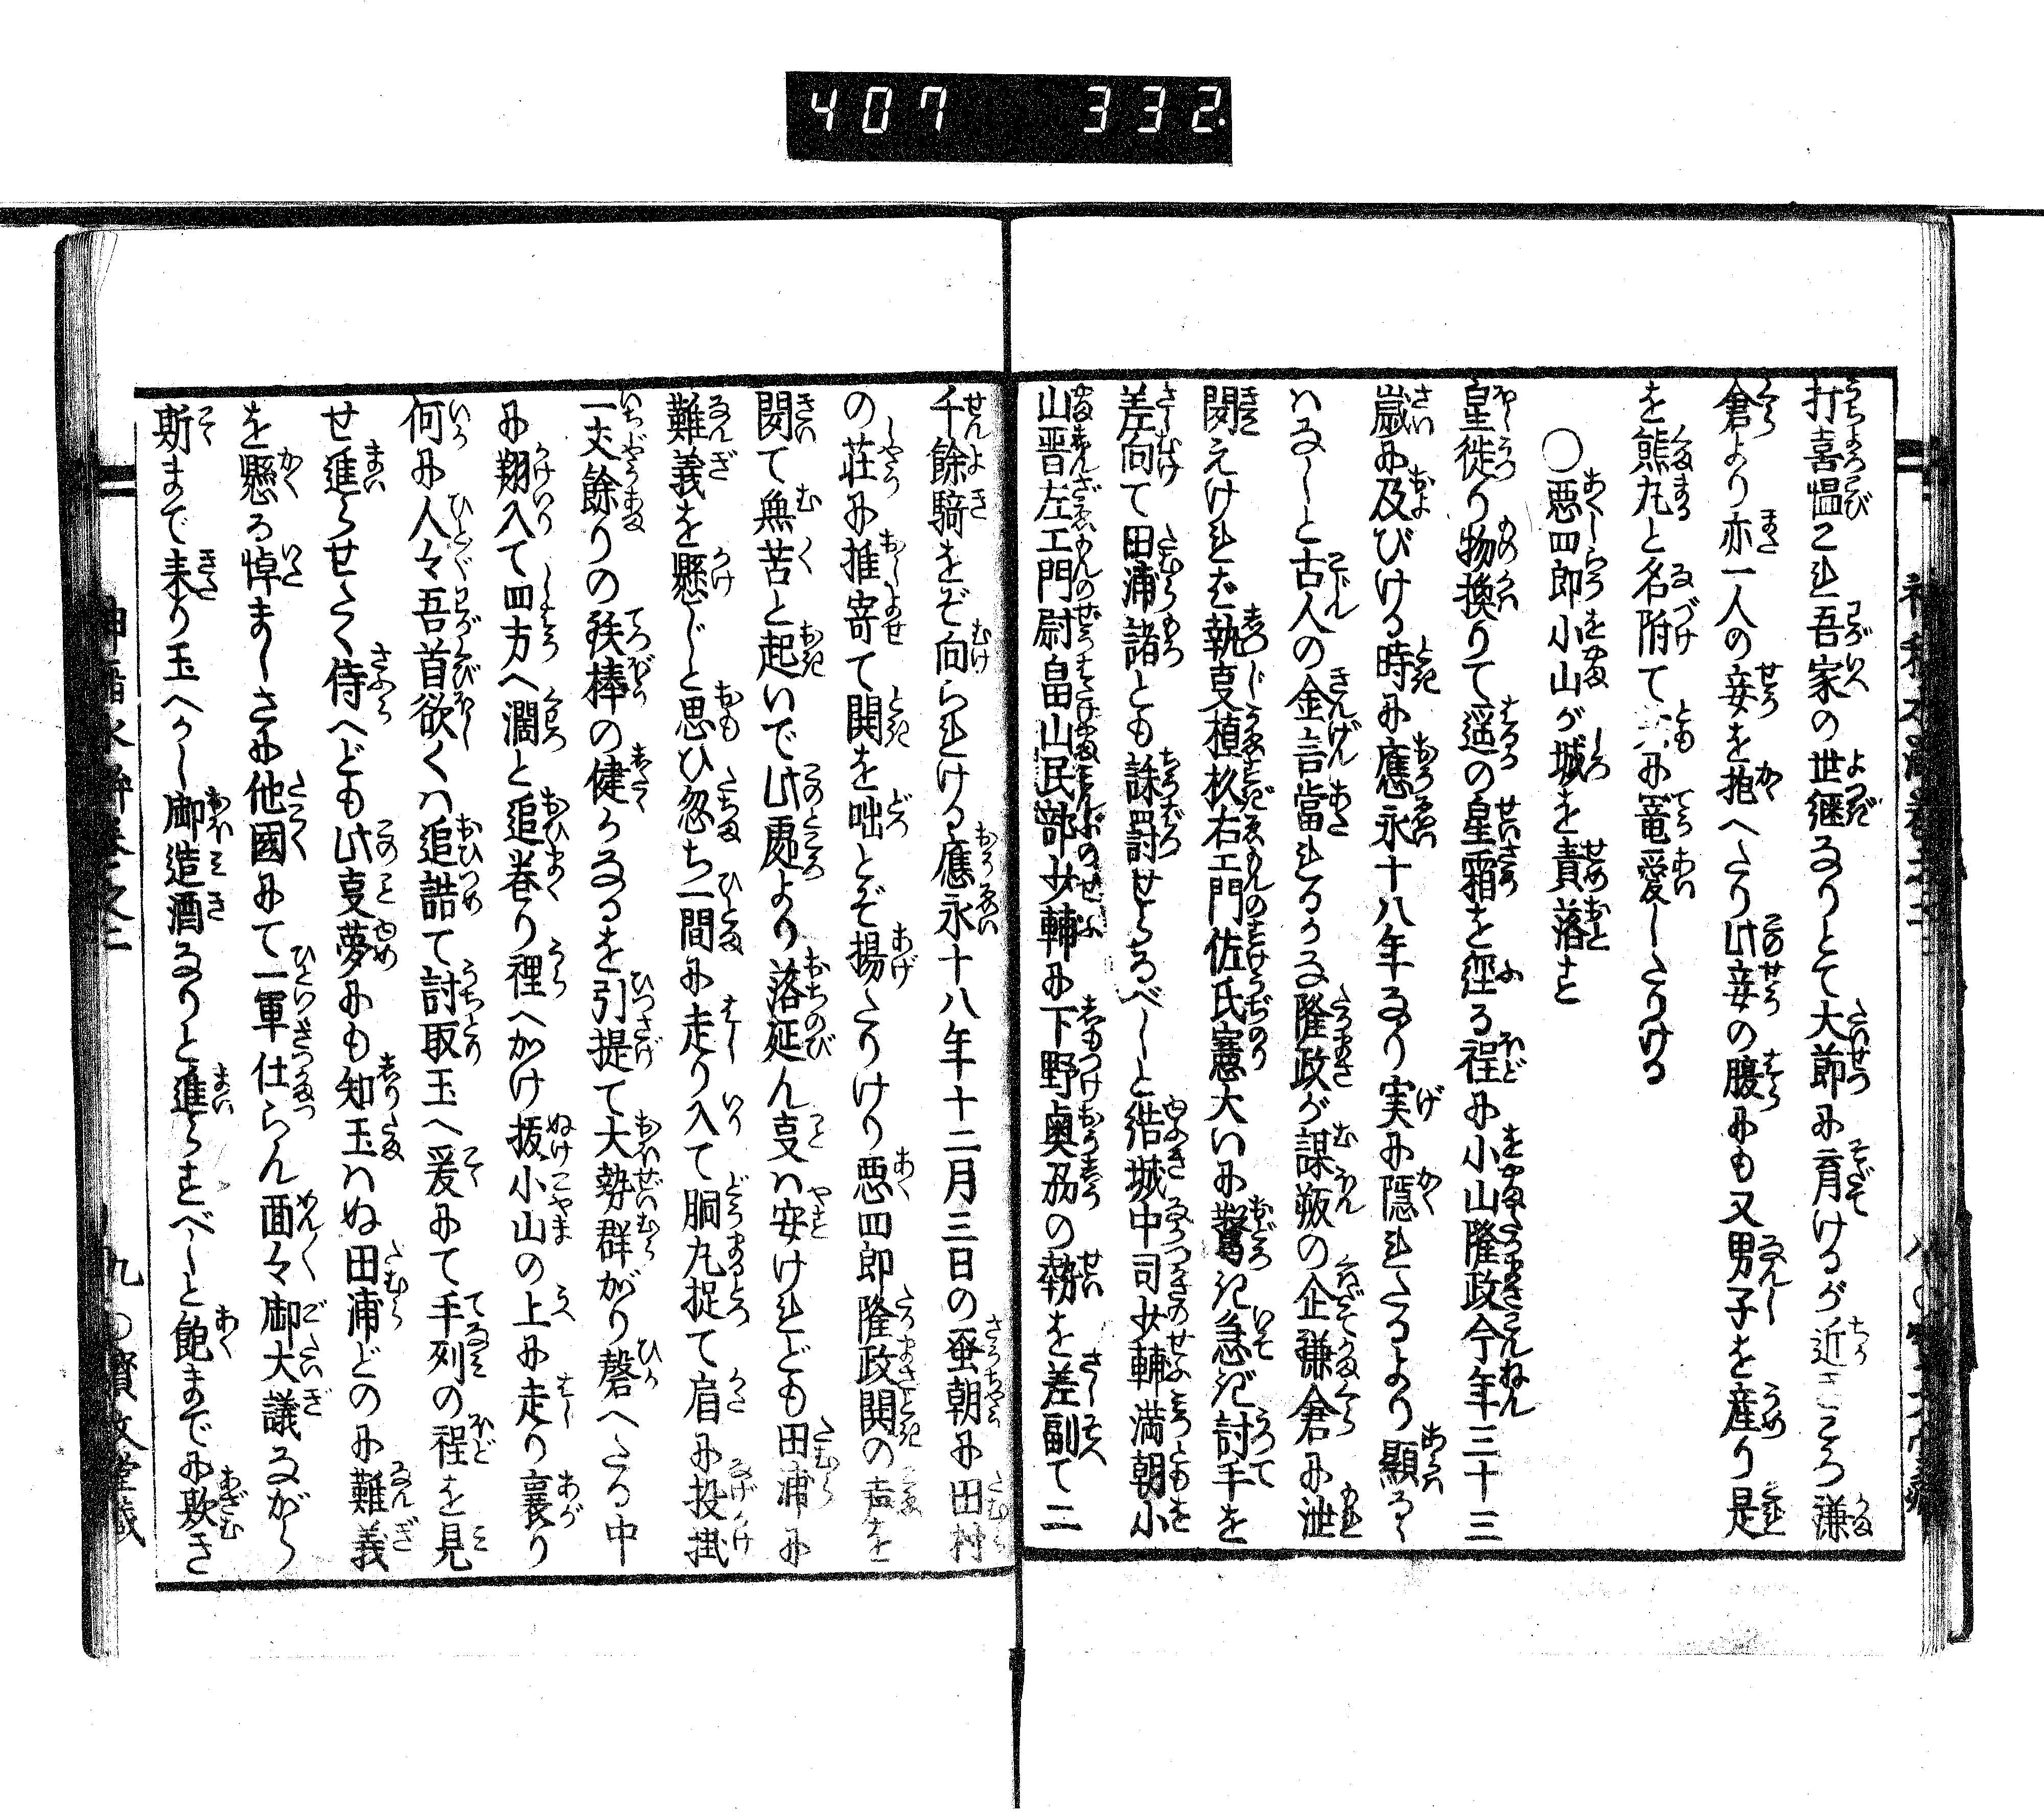 407 332.
打喜愠これ吾家の世継なりとて大節に育けるが近ころ鎌
倉より亦一人の妾を抱へたり此妾の腹にも又男子を産り是
を熊丸と名附てともに寵愛したりける
○悪四郎小山が城を責落す
星徙り物換りて遥の星霜を經る程に小山隆政今年三十三
歳に及びける時に應永十八年なり実に隠れたるより顕るゝ
はなしと古人の金言當れるかな隆政が謀叛の企鎌倉に泄
聞えければ執事植杉右エ門佐氏憲大いに驚き急ぎ討手を
差向て田浦諸とも誅罰せらるべしと結城中司少輔満朝小
山晋左エ門尉畠山民部少輔に下野奥州の勢を差副て二
千餘騎をぞ向られける應永十八年十二月三日の蚤朝に田村
の荘に推寄て鬨を咄とぞ揚たりけり悪四郎隆政鬨の声を
聞て無苦と起いで此處より落延ん事は安けれども田浦に
難義を懸じと思ひ忽ち一間に走り入て胴丸捉て肩に投掛
一丈餘りの鉄棒の健かなるを引提て大勢群がり磬へたる中
に翔入て四方へ濶と追巻り裡へかけ抜小山の上に走り襄り
何に人々吾首欲くは追詰て討取玉へ爰にて手列の程を見
せ進らせたく侍へども此事夢にも知玉はぬ田浦どのに難義
を懸る悼ましさに他國にて一軍仕らん面々御大議ながら
斯まで来り玉へかし御造酒なりと進らすべしと飽までに欺き
九○賢文堂蔵